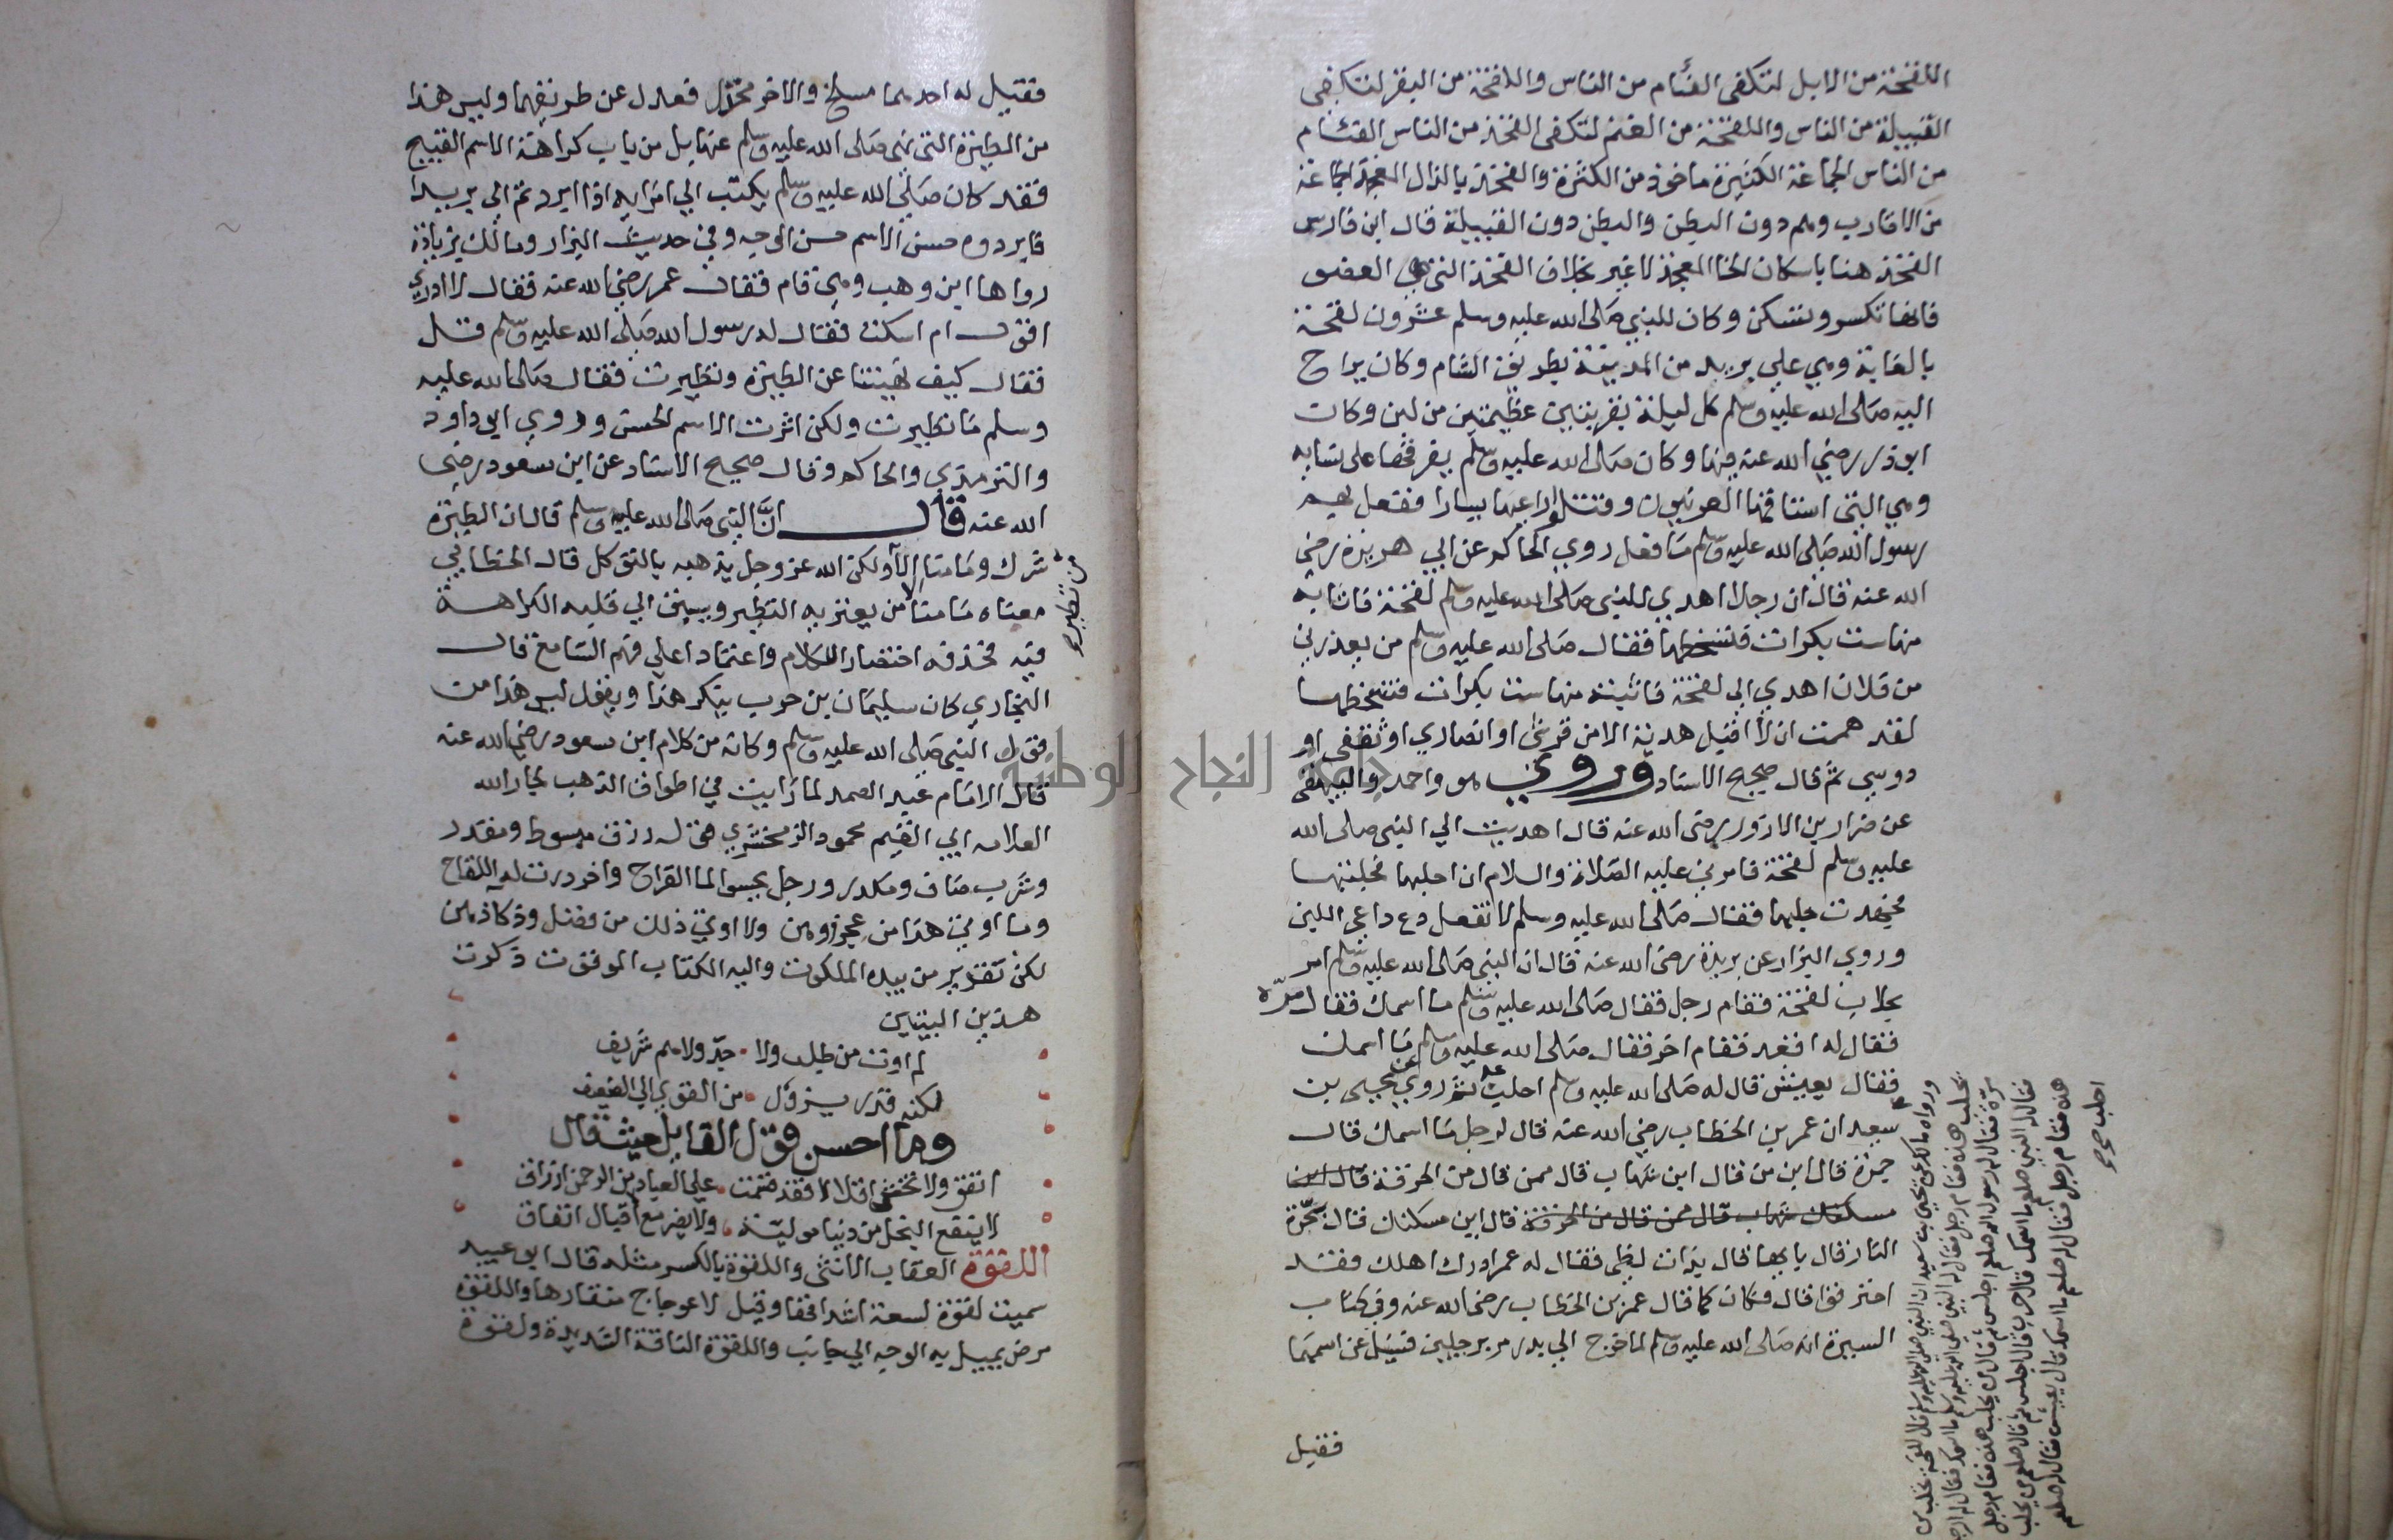 اللقحة من الابل لتكفى الفئام من الناس واللقحة من البقر لتكفى
القبيلة من الناس واللقحة من الغنم لتكفى الفخذ من الناس الفئام
من الناس الجماعة الكثيرة ماخوذ من الكثرة والفخذ بالذال المعجمة الجماعة
من الاقارب وهم دون البطن والبطن دون القبيلة قال ابن فارس
الفخذ هنا باسكان الخا المعجمة لا غير بخلاف الفخذ التي هي العضو
فانها تكسر وتسكن وكان للنبي صلى الله عليه وسلم عشرون لقحة
بالغابة وهي على بريد من المدينة بطريق الشام وكان يراح
اليه صلى الله عليه وسلم كل ليلة بقربتين عظيمتين من لبن وكان
ابو ذر رضي الله عنه فيها وكان صلى الله عليه وسلم يفرقها على نسايه
وهي التي استاقها العرنيون وقتلوا راعيها يسارا ففعل بهم
رسول الله صلى الله عليه وسلم ما فعل روى الحاكم عن ابي هريرة رضي
الله عنه قال ان رجلا اهدى للنبي صلى الله عليه وسلم لقحة فاثابه
منها ست بكرات فتسخطها فقال صلى الله عليه وسلم من يعذرني
من فلان اهدى الى لقحة فاثبته منها ست بكرات فتسخطها
لقد هممت ان لا اقبل هدية الا من قرشى او انصاري او ثقفى او
دوسي ثم قال صحيح الاسناد وروي هو واحمد والبيهقى
عن ضرار بن الازور رضى الله عنه قال اهديت الي النبي صلى الله
عليه وسلم لقحة فامرني عليه الصلاة والسلام ان احلبها فحلبتها
فجهدت حلبها فقال صلى الله عليه وسلم لا تفعل دع داعي اللبن
وروي البزار عن بريدة رضى الله عنه قال ان النبي صلى الله عليه وسلم امر
بحلاب لقحة فقام رجل فقال صلى الله عليه وسلم ما اسمك فقال مرّه
فقال له اقعد فقام اخر فقال صلى الله عليه وسلم ما اسمك
فقال يعيش قال له صلى الله عليه وسلم احلب ثم روي عن يحيى بن
سعيد ان عمر بن الخطاب رضي الله عنه قال لرجل ما اسمك قال
جمرة قال ابن من قال ابن شهاب قال ممن قال من الحرقة قال اين
مسكنك شهاب قال ممن قال من الحرقة قال اين مسكنك قال بحرّة
النار قال بايها قال بذات لظى فقال له عمر ادرك اهلك فقد
احترقوا قال فكان كما قال عمر بن الخطاب رضى الله عنه وفي كتاب
السيرة انه صلى الله عليه وسلم لما خرج الي بدر مر برجلين فسئل عن اسمهما
فقيل
ورواه مالك عن يحيى بن سعيد ان النبي صلى الله عليه وسلم قال للقحة تحلب من
يحلب هذه فقام رجل فقال له النبي صلى الله عليه وسلم ما اسمك فقال له الرجل
مرّة فقال له رسول الله صلعم اجلس ثم قال من يحلب هذه فقام رجل
فقال له النبي صلعم ما اسمك قال حرب قال اجلس ثم قال صلعم من يحلب
هذه فقام رجل فقال له صلعم ما اسمك قال يعيش فقال له صلعم
احلب صح صح
فقيل له احدهما مسلح والاخر مخذل فعدل عن طريقهما وليس هذا
من الطيرة التي نهى صلى الله عليه وسلم عنها بل من باب كراهة الاسم القبيح
فقد كان صلى الله عليه وسلم يكتب الي امرايه اذا ابردتم الي بريدا
فابردوه حسن الاسم حسن الوجه وفي حديث البزار ومالك زيادة
رواها ابن وهب وهي قام فقال عمر رضي الله عنه فقال لا ادري
اقول ام اسكت فقال له رسول الله صلى الله عليه وسلم قل
فقال كيف نهيتنا عن الطيرة وتطيرت فقال صلى الله عليه
وسلم ما تطيرت ولكن اثرت الاسم الحسن وروي ابو داود
والترمذي والحاكم وقال صحيح الاسناد عن ابن مسعود رضي
الله عنه قال انّ النبي صلى الله عليه وسلم قال ان الطيرة
شرك وما منا الا ولكن الله عز وجل يذهبه بالتوكل قال الخطابي
معناه ما منا الا من يعتريه التطير ويسبق الي قلبه الكراهة
من تطير صح
فيه فحذفه اختصار الكلام واعتمادا على فهم السامع قال
البخاري كان سليمان بن حرب ينكر هذا ويقول ليس هذا من
قول النبي صلى الله عليه وسلم وكانه من كلام ابن مسعود رضي الله عنه
قال الامام عبد الصمد لما رايت في اطواق الذهب لجار الله
العلامه ابي القسم محمود الزمخشري في له رزق مبسوط ومقدر
وشرب صاف ومكدر ورجل يحسوا لما القراح واخر درت له اللقاح
وما اوتي هذا من عجز ووهن ولا اوتي ذلك من فضل وذكا ذهن
لكن تقدير من بيده الملكوت واليه الكتاب الموقوت ذكرت
هذين البيتين
لم اوت من طلب ولا جدّ ولا هم شريف
لكنه قدر يزول من القوي الى الضعيف
وما احسن قول القايل حيث قال
انفق ولا تخشى اقلالا فقد قسمت على العباد من الرحمن ارزاق
لا ينفع البخل من دنيا موليّة ولا يضر مع اقبال انفاق
اللقوة العقاب الانثى واللقوة بالكسر مثله قال ابو عبيد
سميت لقوة لسعة اشداقها وقيل لاعوجاج منقارها واللقوة
مرض يميل به الوجه الي جانب واللقوة الناقة الشديدة ولقوة
جامعة النجاح الوطنية